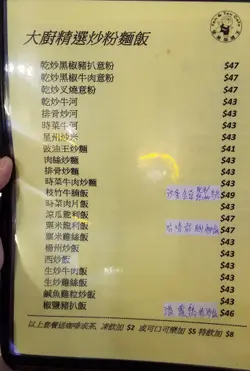 大廚精選炒粉麵飯
乾炒黑椒豬扒意粉 $47
乾炒黑椒牛肉意粉 $47
乾炒叉燒意粉 $47
乾炒牛河 $43
排骨炒河 $43
時菜牛河 $43
星州炒米 $43
豉油王炒麵 $41
肉絲炒麵 $43
排骨炒麵 $43
時菜牛肉炒麵 $43
枝竹牛腩飯 $49
時菜肉片飯 $43
涼瓜龍利飯 $47
粟米龍利飯 $47
粟米雞絲飯 $43
楊州炒飯 $43
西炒飯 $43
生炒牛肉飯 $43
生炒雞絲飯 $43
鹹魚雞粒炒飯 $43
椒鹽豬扒飯 $46
以上套餐送咖啡或茶, 凍飲加 $2 或可口可樂加 $5 特飲加 $8